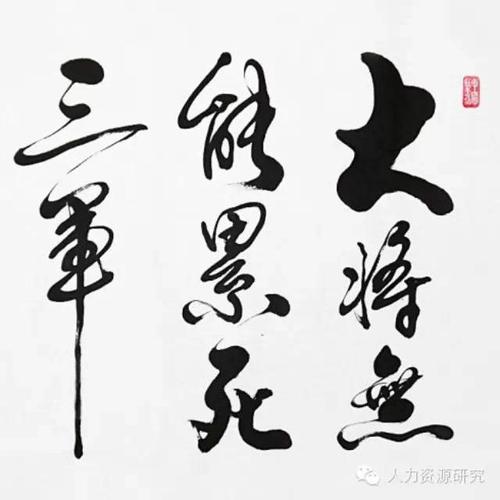 大将無
能累死
三軍
人力资源研究